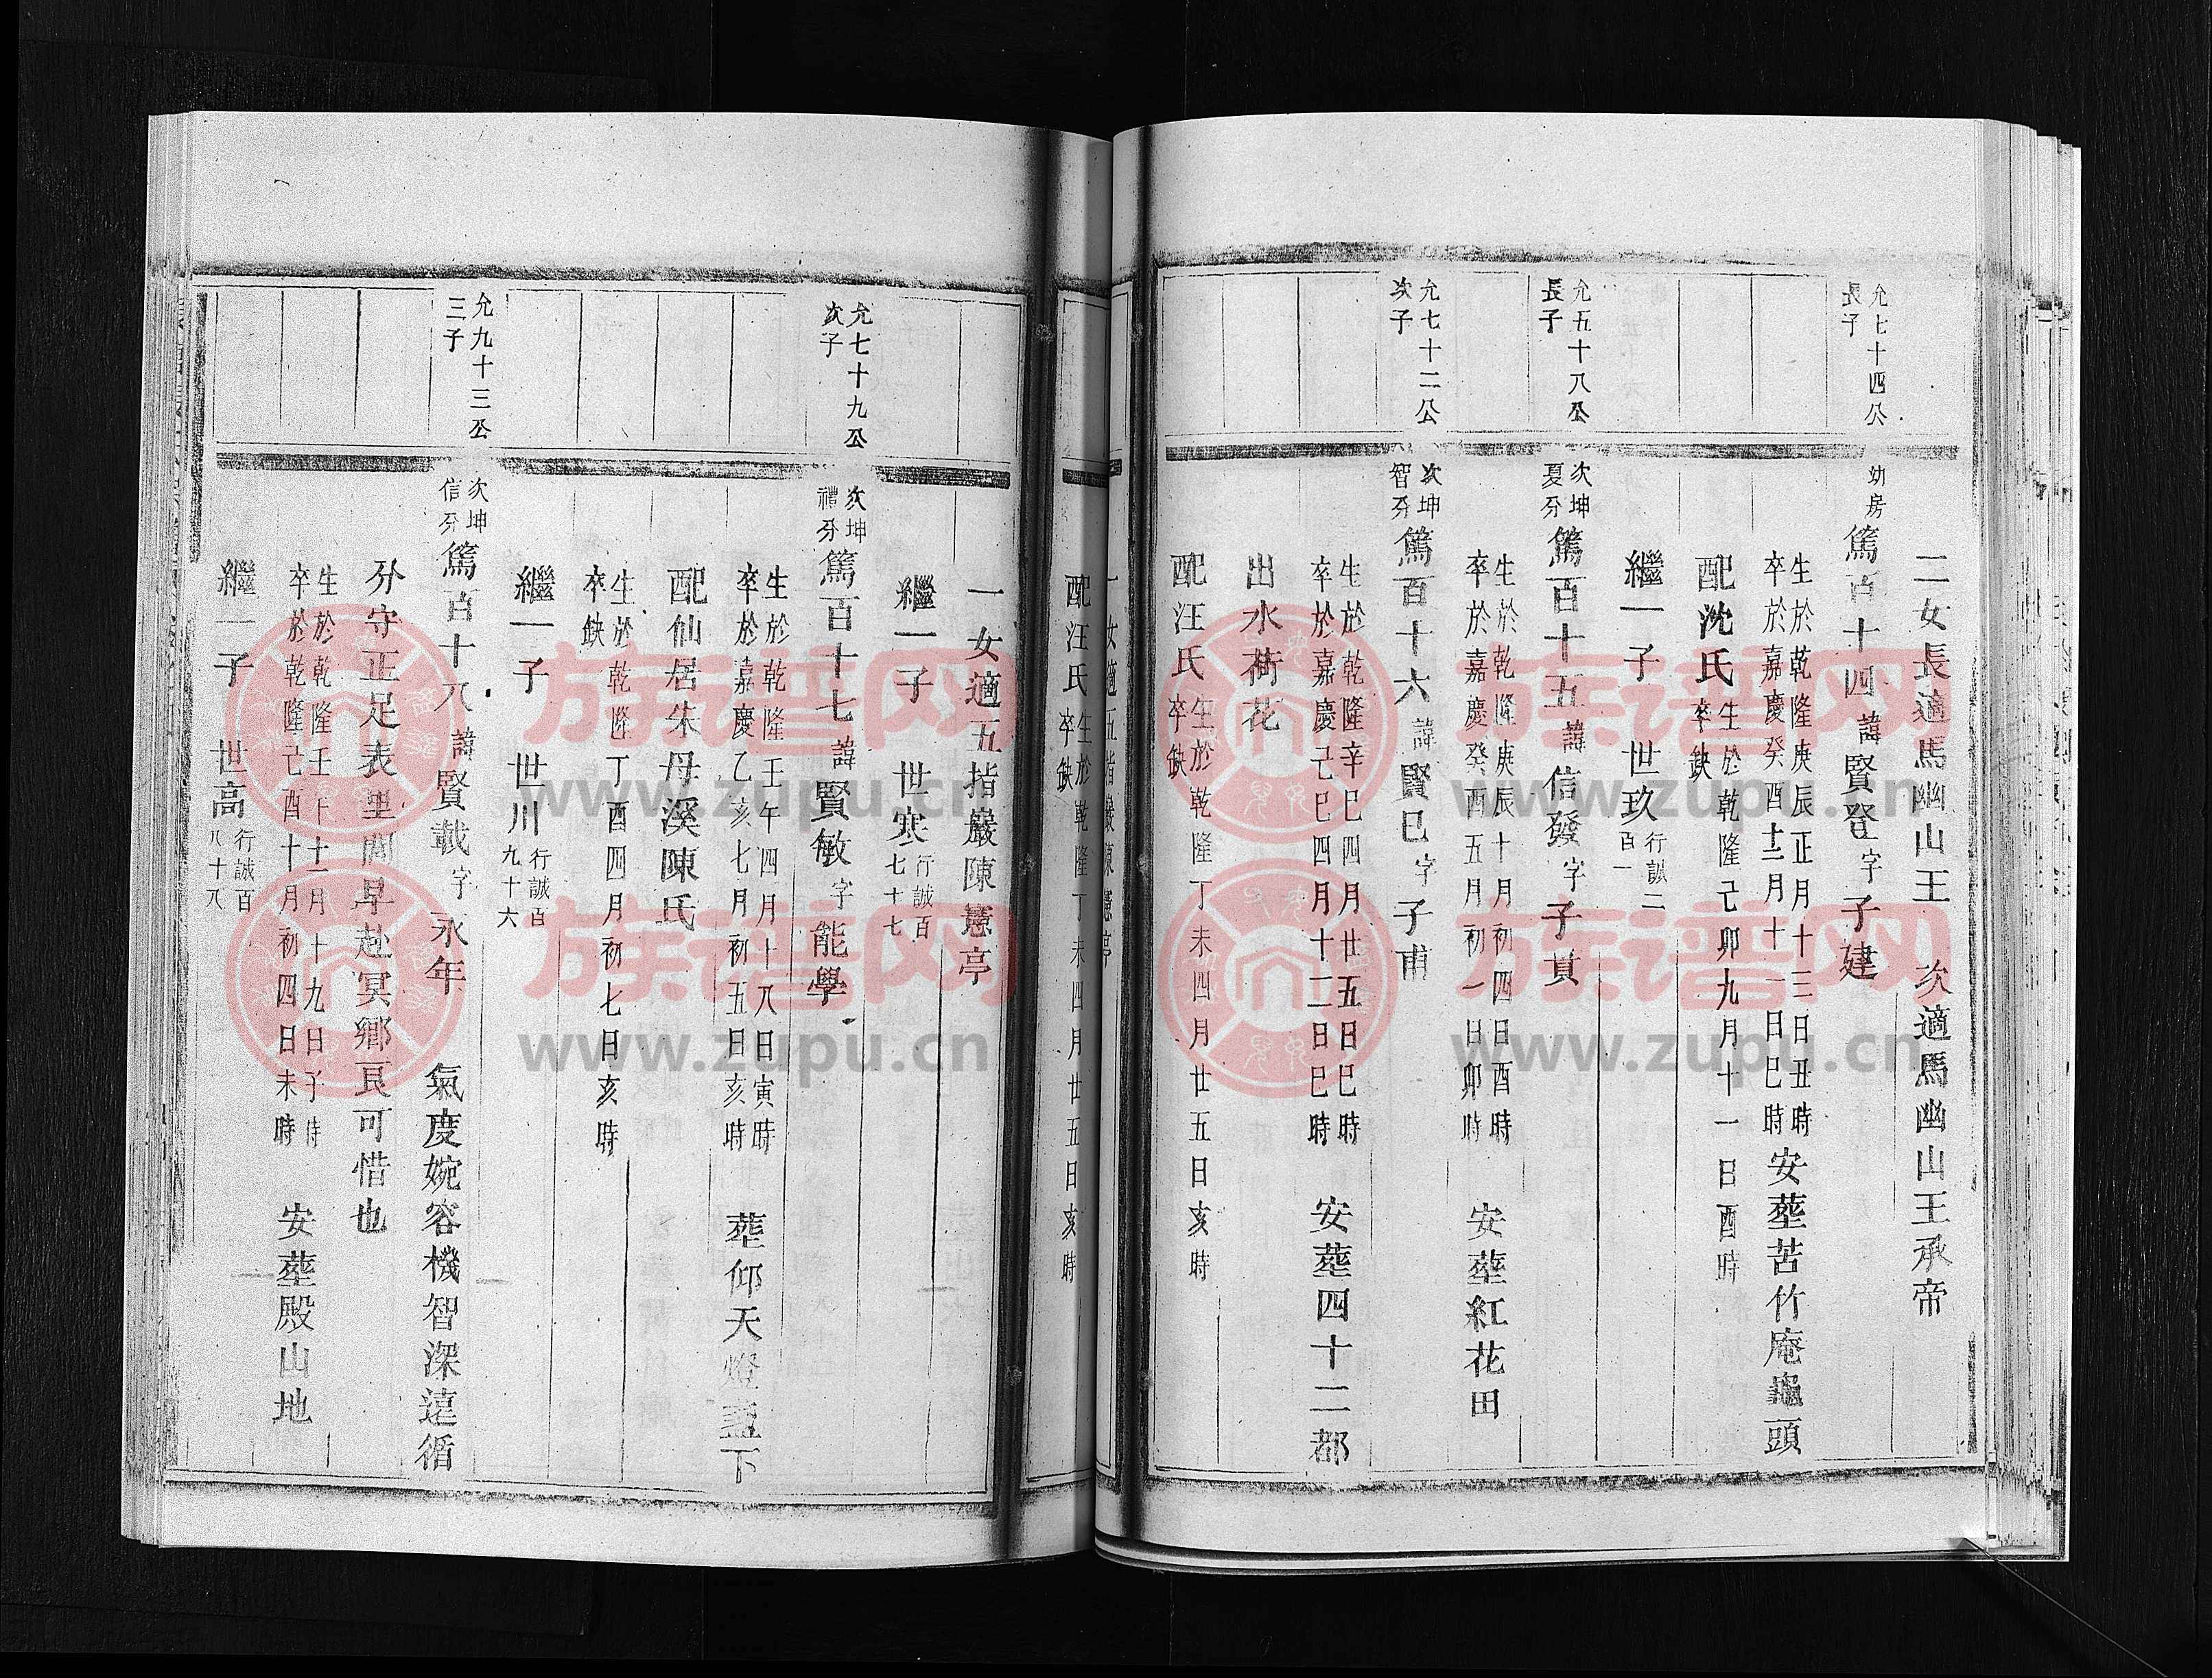 二女長適馬幽山王　次適馬幽山王承帝
允七十四公
長子
幼房
篤百十四諱賢登字子建
生於乾隆庚辰正月十三日丑時
卒於嘉慶癸酉十二月十一日巳時
安塟苦竹庵龜頭
配沈氏
生於乾隆己卯九月十一日酉時
卒缺
繼一子　世玖
行誠二
百一
允五十八公
長子
次坤
夏分
篤百十五諱信發字子貢
生於乾隆庚辰十月初四日酉時
卒於嘉慶癸酉五月初一日卯時
安塟紅花田
允七十二公
次子
次坤
智分
篤百十六諱賢巳字子甫
生於乾隆辛巳四月廿五日巳時
卒於嘉慶己巳四月十二日巳時
安塟四十二都
出水荷花
配汪氏
生於乾隆丁未四月廿五日亥時
卒缺
一女適五指巖陳憲亭
配汪氏
生於乾隆丁未四月廿五日亥時
卒缺
一女適五指巖陳憲亭
繼一子　世寒
行誠百
七十七
允七十九公
次子
次坤
禮分
篤百十七諱賢敏字能學
生於乾隆壬午四月十八日寅時
卒於嘉慶乙亥七月初五日亥時
塟仰天燈盞下
配仙居朱母溪陳氏
生於乾隆丁酉四月初七日亥時
卒缺
繼一子　世川
行誠百
九十六
允九十三公
三子
次坤
信分
篤百十八諱賢載字永年　氣度婉容機智深遠循
分守正足表里閭早赴冥鄉良可惜也
生於乾隆壬午十一月十九日子時
卒於乾隆己酉十月初四日未時
安塟殿山地
繼一子　世高
行誠百
八十八
族谱网
www.zupu.cn
族谱网
www.zupu.cn
族谱网
www.zupu.cn
族谱网
www.zupu.cn